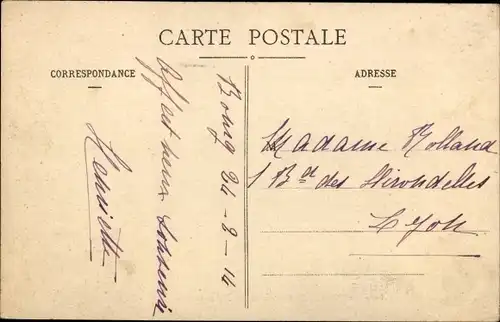 CARTE POSTALE
CORRESPONDANCE
ADRESSE
Bourg 24-8-14
Affectueux Souvenir
Henriette
Madame Rolland
1 Bd des Hirondelles
Lyon